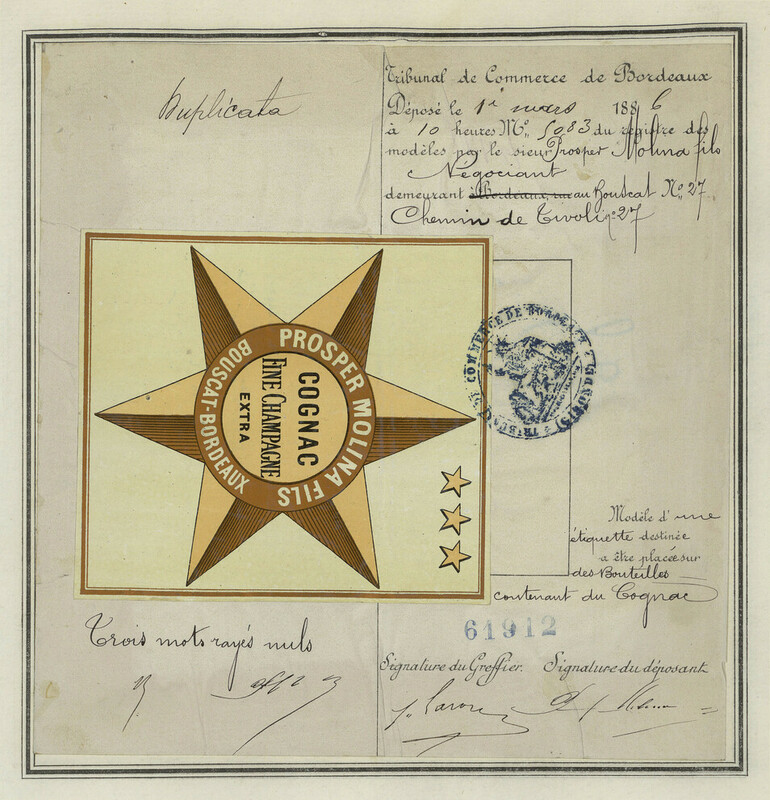 Duplicata
Tribunal de Commerce de Bordeaux
Déposé le 1er mars 1886
à 10 heures No. 5083 du registre des
modèles par le sieur Prosper Molina fils
Négociant
demeurant à Bordeaux, rue au Bouscat No. 27
Chemin de Tivoli no 27
PROSPER MOLINA FILS
BOUSCAT-BORDEAUX
COGNAC
FINE CHAMPAGNE
EXTRA
TRIBUNAL DE COMMERCE DE BORDEAUX (GIRONDE)
Modèle d'une
étiquette destinée
a être placée sur
des Bouteilles
contenant du Cognac
61912
Trois mots rayés nuls
Signature du Greffier. Signature du déposant